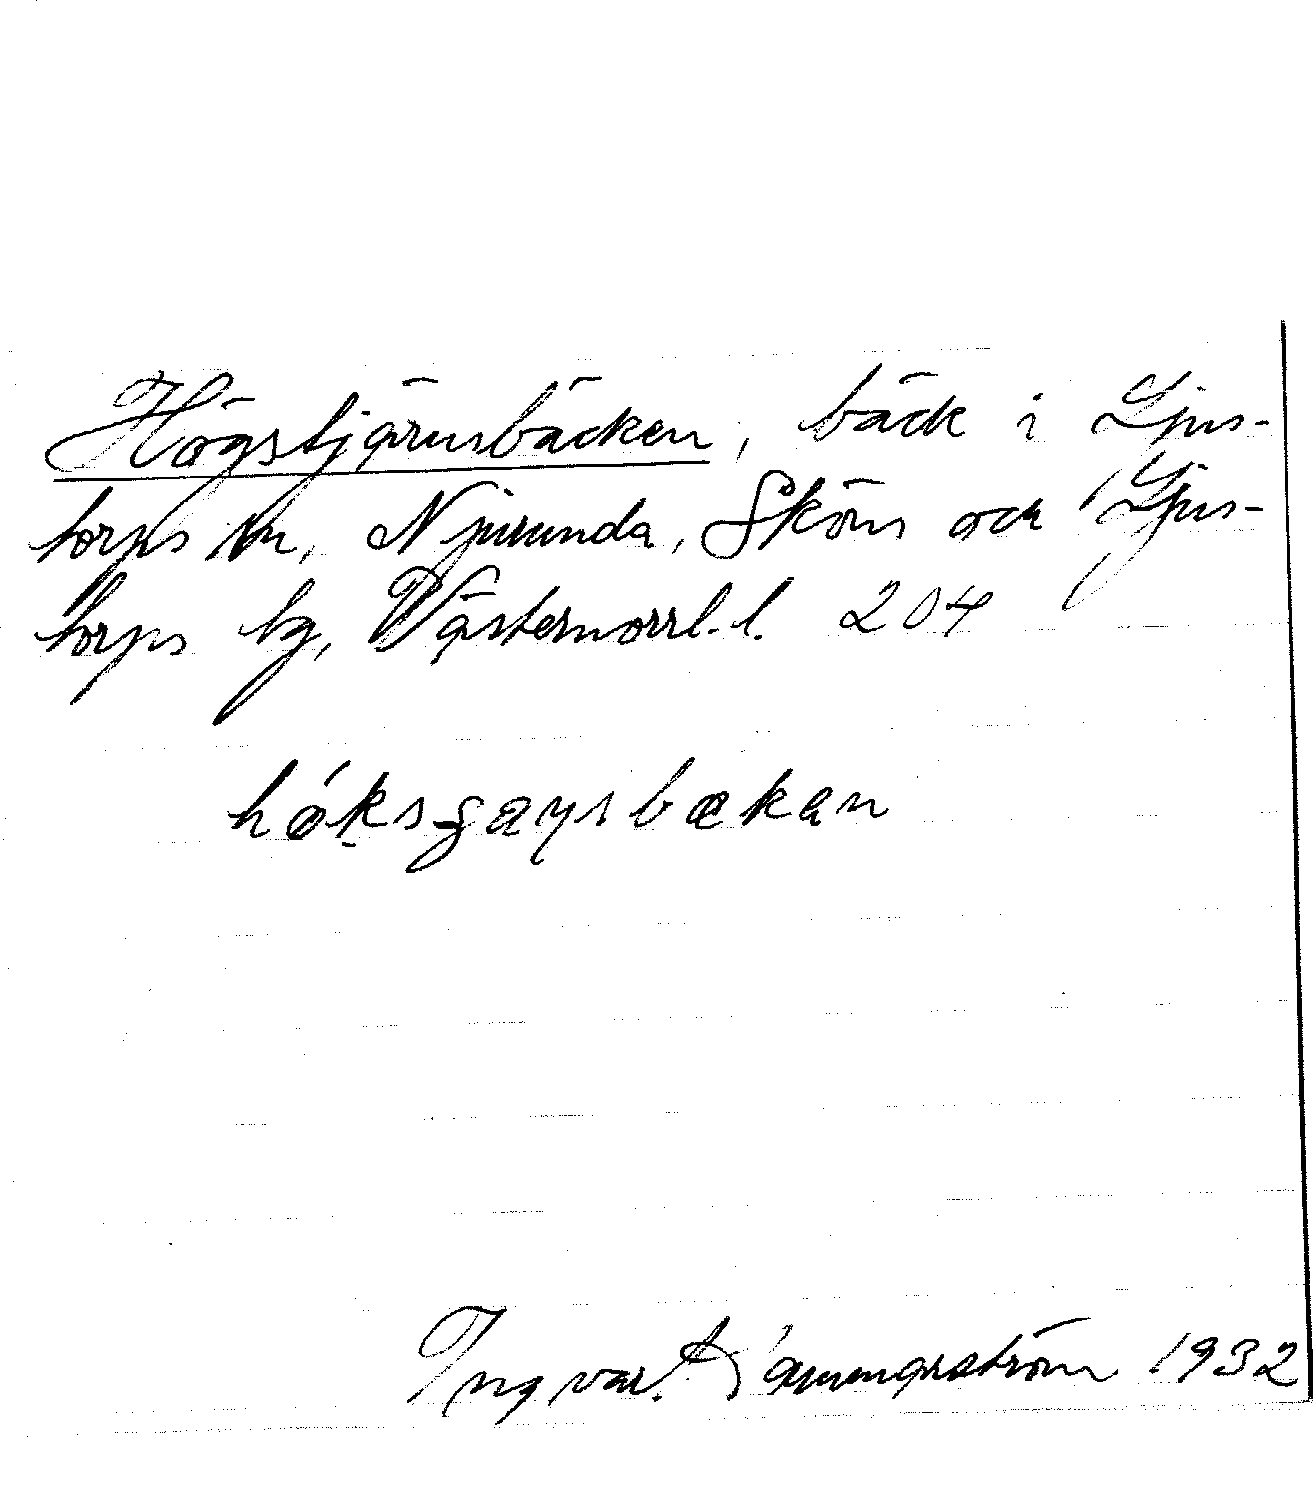 Högstjärnsbäcken, bäck i Ljus-
torps sn, Njurunda, Sköns och Ljus-
torps tg, Västernorrl. l. 204
hóksgaysbækan
Ingvar 1932